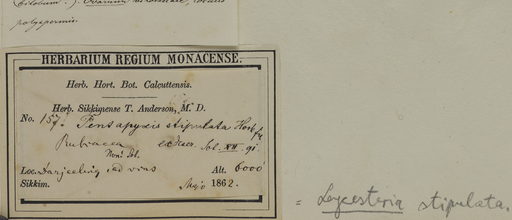 polyspermis.
HERBARIUM REGIUM MONACENSE.
Herb. Hort. Bot. Calcuttensis.
Herb. Sikkimense T. Anderson, M. D.
No. 157. Pentapyxis stipulata Hook fil
Rubiacea
Loc. Darjeeling ad vias Alt. 6000
Sikkim. 1862.
= Leycesteria stipulata.